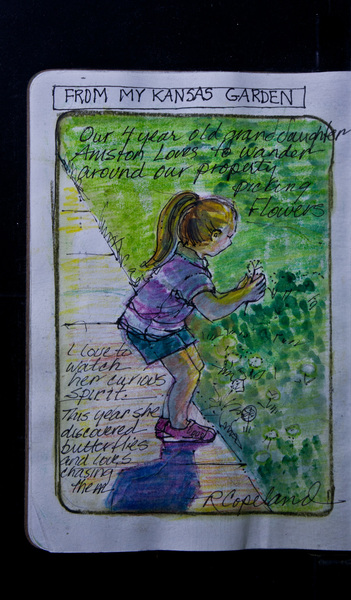 FROM MY KANSAS GARDEN
Our 4 year old granddaughter
Aniston Loves to wander
around our property
picking
Flowers
I love to
watch
her curious
spirit.
This year she
discovered
butterflies
and loves
chasing
them
R Copeland 11